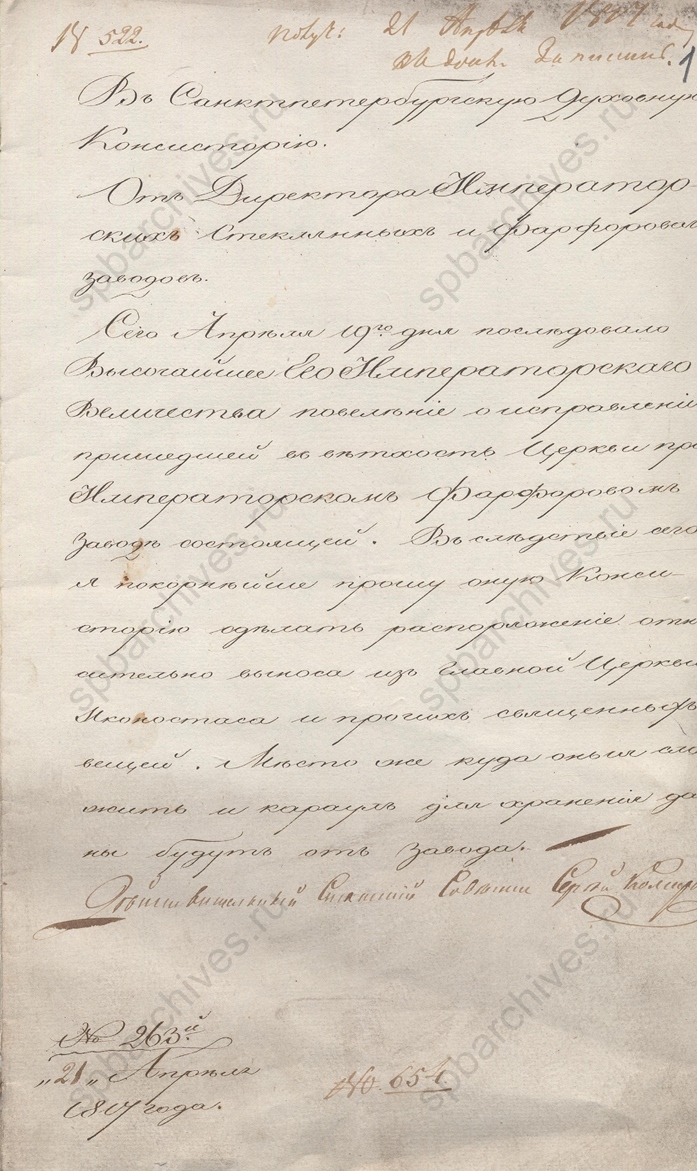 № 522.
получ: 21 Апреля 1817 года
1
Въ Санктпетербургскую Духовную
Консисторію.
Отъ Директора Император
скихъ Стеклянныхъ и фарфоровых
заводовъ.
Сего Апреля 19го дня последовало
Высочайшее Его Императорскаго
Величества повеленіе о исправленіи
пришедшей въ ветхость Церкви при
Императорскомъ Фарфоровомъ
заводѣ состоящей. Въ следствіе сего
я покорнейше прошу оную Конси-
сторію сделать распоряженіе отно
сительно выноса изъ главной Церкви
Иконостаса и прочихъ священныхъ
вещей. Место же куда оныя сло
жить и караулъ для храненія да
ны будутъ отъ завода.
Действительный Статскій Советникъ Сергей
№ 263й
„21„ Апреля
1817 года.
№. 654.
spbarchives.ru
spbarchives.ru
spbarchives.ru
spbarchives.ru
spbarchives.ru
spbarchives.ru